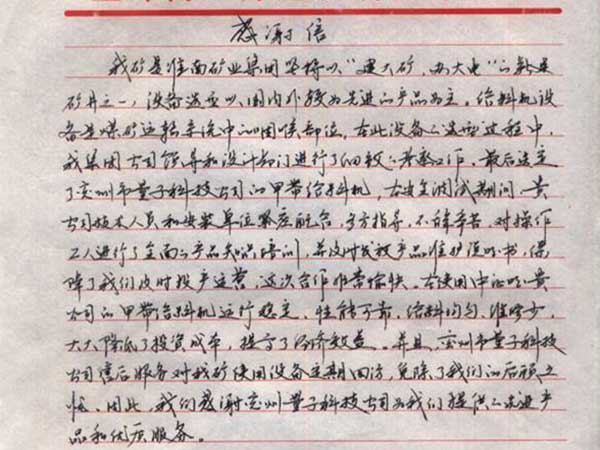 感谢信
我矿是淮南矿业集团坚持以“建大矿，办大电”的新星
矿井之一，设备选型以国内外较为先进的产品为主。给料机设
备是煤矿运转系统中的咽喉部位，在此设备的选型过程中，
我集团公司领导和设计部门进行了细致的考察工作，最后选定
了兖州市量子科技公司的甲带给料机，在安全调试期间，贵
公司技术人员和安装单位紧密配合，多方指导，不辞辛苦，对操作
工人进行了全面的产品知识培训，并及时发放产品维护说明书，保
障了我们及时投产运营，这次合作非常愉快。在使用中证明贵
公司的甲带给料机运行稳定、性能可靠、给料均匀、维修少，
大大降低了投资成本，提高了经济效益。并且，兖州市量子科技
公司售后服务对我矿使用设备定期回访，免除了我们的后顾之
忧。因此，我们感谢兖州量子科技公司为我们提供的先进产
品和优质服务。